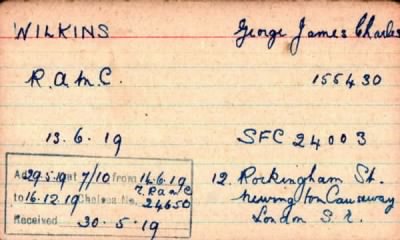 WILKINS George James Charles
R.A.M.C. 155430
13.6.19 SFC 24003
29.5.19 at 7/10 from 14.6.19
R.A.M.C
to 16.12.19 Chelsea No. 24650
Received 30.5.19
12. Rockingham St.
Newington Causeway
London S.E.